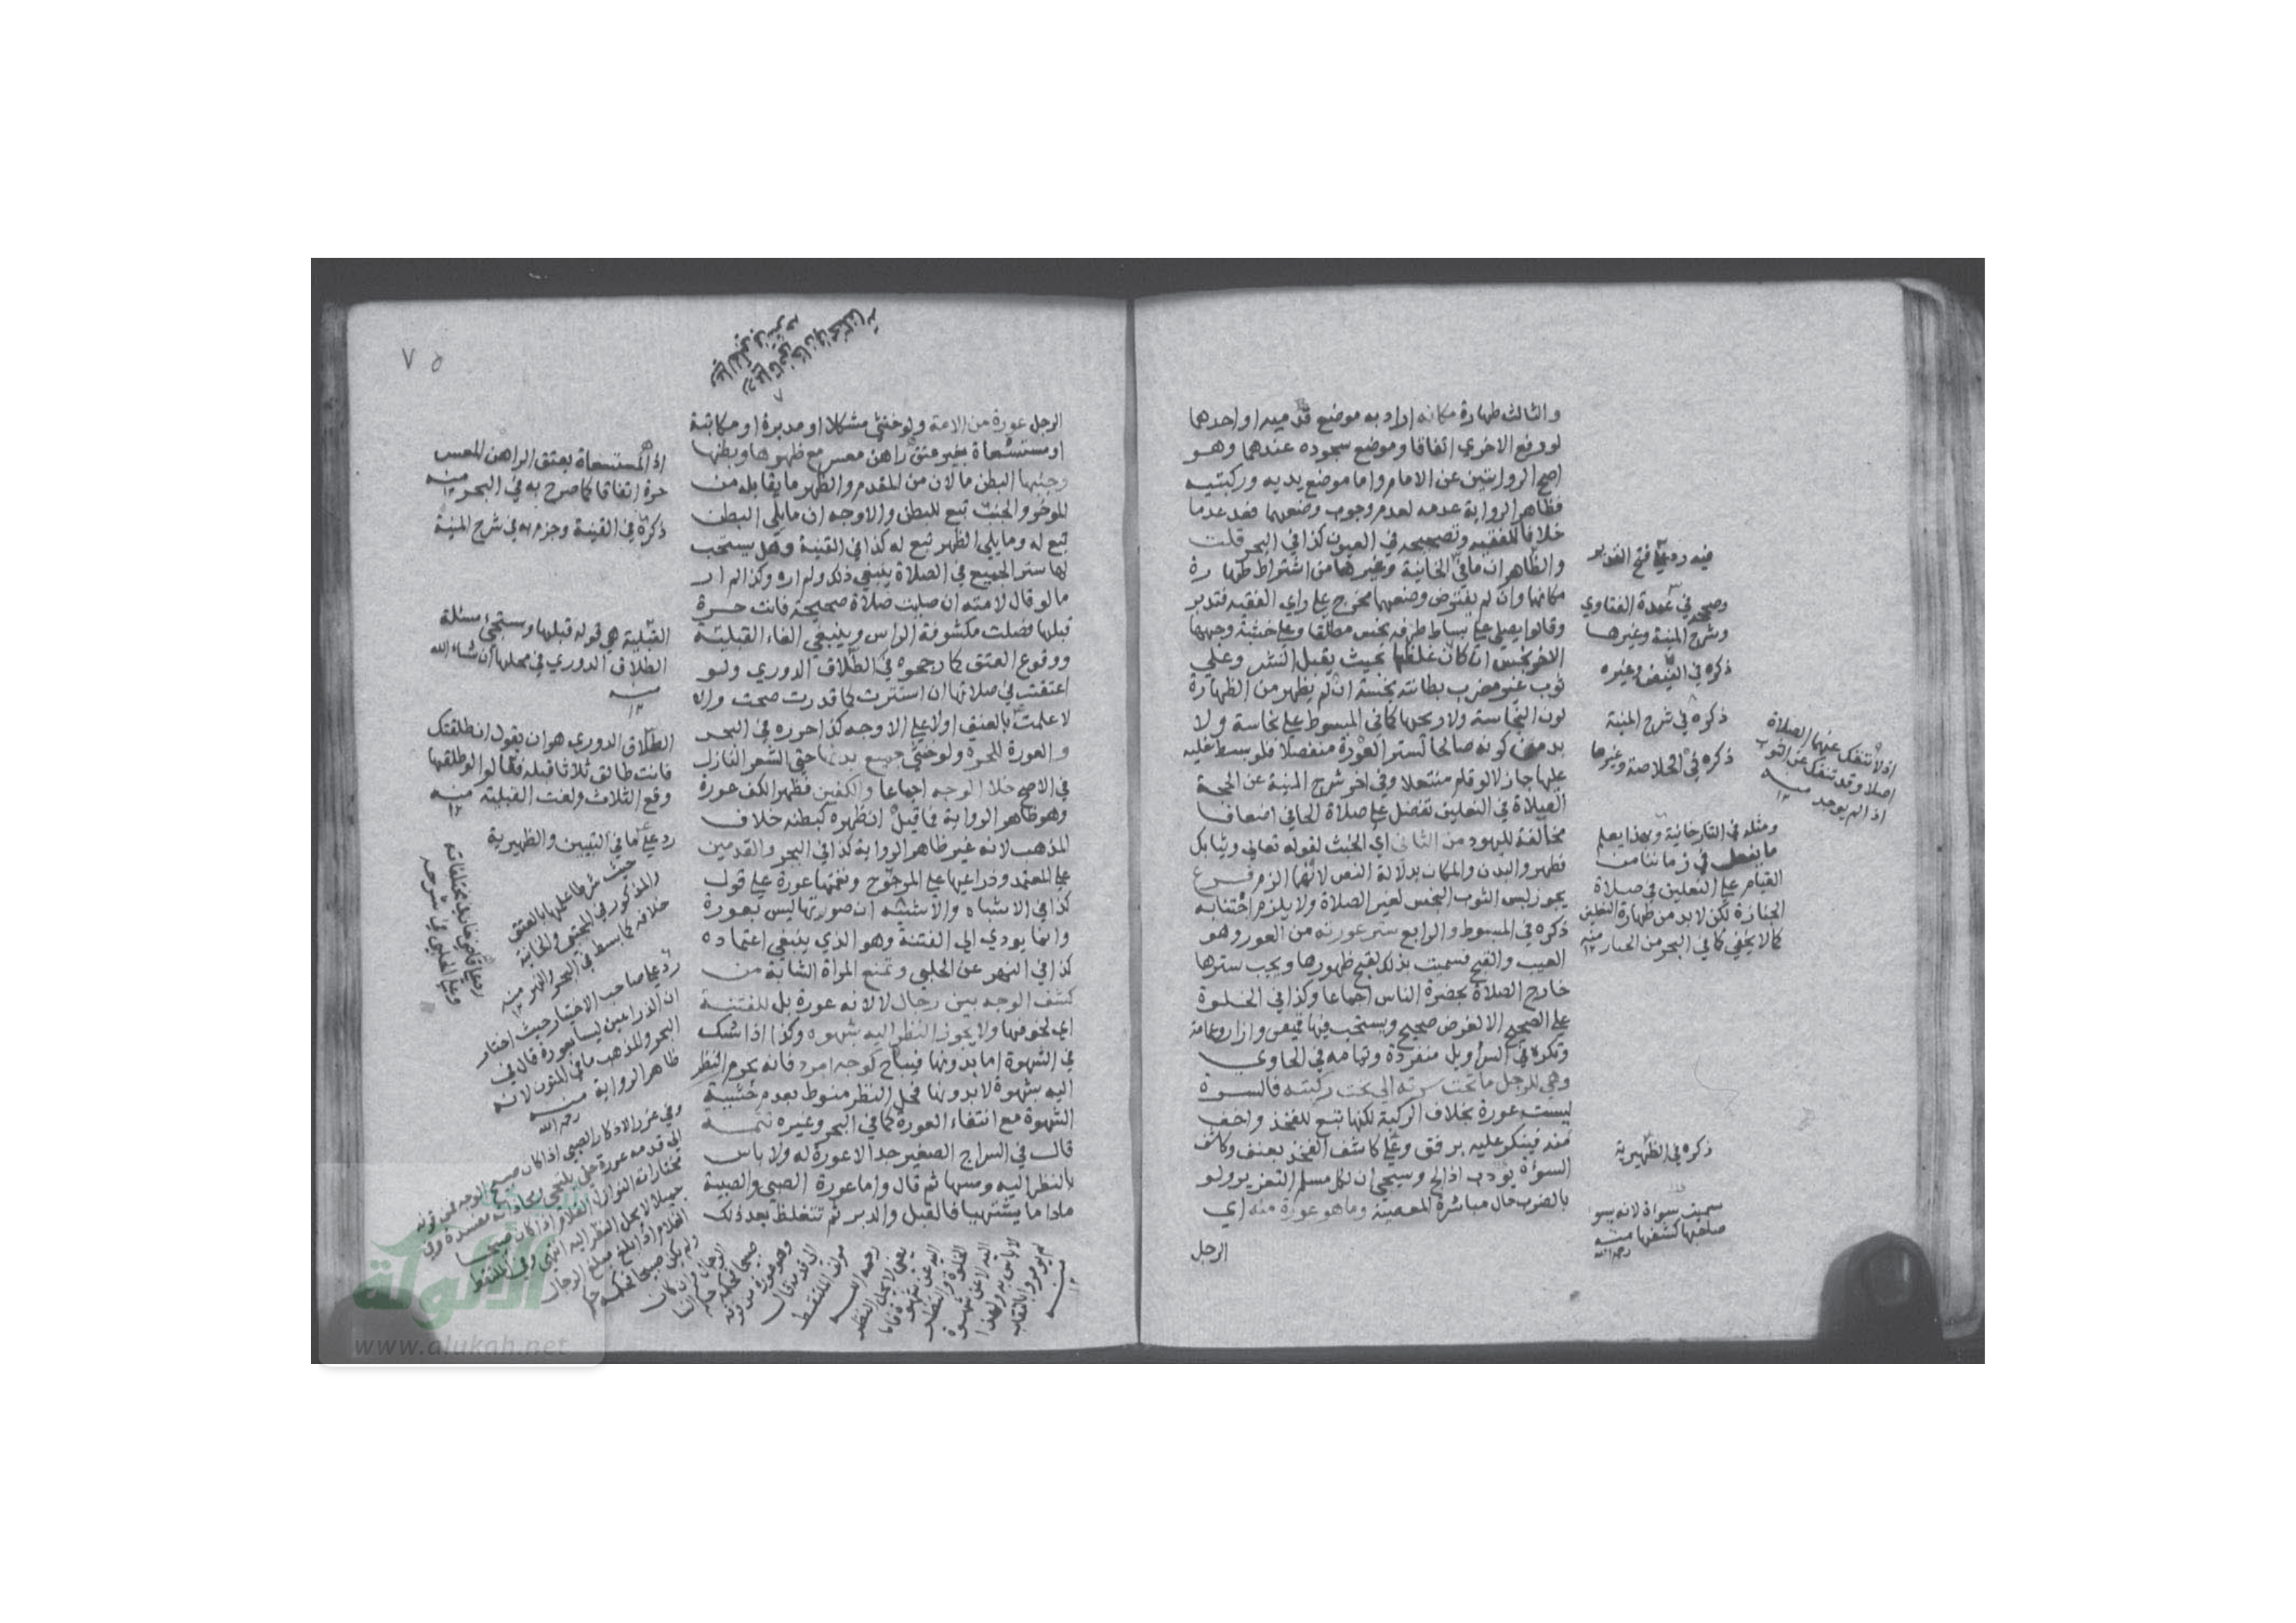 والثالث طهارة مكانه اراد به موضع قدميه او احدها
لو رفع الاخري اتفاقا وموضع سجوده عندهما وهو
اصح الروايتين عن الامام واما موضع يديه وركبتيه
فظاهر الرواية عدمه لعدم وجوب وضعهما فقد عدما
خلافا للفقيه وتصحيحه في العيون كذا في البحر قلت
والظاهر ان ما في الخانية وغيرها من اشتراط طهارة
مكانها وان لم يفترض وضعهما مخرج علي راي الفقيه فتدبر
وقالوا يصلي علي بساط طرفه نجس مطلقا وعلي خشبة وجهها
الاخر نجس ان كان غلظها بحيث يقبل النشر وعلي
ثوب غير مضرب بطانته نجسة ان لم يظهر من الظهارة
لون النجاسة ولا ريحها كما في المبسوط علي نجاسة ولا
بد من كونه صالحا لستر العورة منفصلا فلو بسط نعليه
عليها جاز لا لو قام منتعلا وفي اخر شرح المنية عن الحجة
الصلاة في النعلين تفضل علي صلاة الحافي اضعاف
مخالفة لليهود من الثاني اي الخبث لقوله تعالي وثيابك
فطهر والبدن والمكان بدلالة النص لانهما الزم فرع
يجوز لبس الثوب النجس لغير الصلاة ولا يلزم اجتنابه
ذكره في المبسوط والرابع ستر عورته من العور وهو
العيب والقبح فسميت بذلك لقبح ظهورها ويجب سترها
خارج الصلاة بحضرة الناس اجماعا وكذا في الخلوة
علي الصحيح الا لغرض صحيح ويستحب فيها قميص وازار وعمامة
وتكره في السراويل منفردة وتمامه في الحاوي
وهي للرجل ما تحت سرته الي تحت ركبته فالسرة
ليست عورة بخلاف الركبة لكنها تبع للفخذ واخف
منه فينكر عليه برفق وعلي كاشف الفخذ بعنف وكاشف
السوءة يؤدب اذا لج وسيجي ان لكل مسلم التعزير ولو
بالضرب حال مباشرة المعصية وما هو عورة منه اي
الرجل
فيه رد علي فتح القدير
وصححه في عمدة الفتاوي
وشرح المنية وغيرها
ذكره في الفيض وغيره
ذكره في شرح المنية
ذكره في الخلاصة وغيرها
اذ لا تنفك عنهما الصلاة
اصلا وقد تنفك عن الثوب
اذا لم يوجد منه
١٢
ومثله في التتارخانية وبهذا يعلم
ما يفعل في زماننا من
القيام علي النعلين في صلاة
الجنازة لكن لا بد من طهارة النعلين
كما لا يخفي كما في البحر من الجنائز منه
ذكره في الظهيرية
سميت سوأة لانه يسوء
صاحبها كشفها منه
رحمه الله
٧٥
الرجل عورة من الامة ولو خنثي مشكلا او مدبرة او مكاتبة
او مستسعاة بغير عتق راهن معسر مع ظهرها وبطنها
وجنبها البطن ما لان من المقدم والظهر ما يقابله من
المؤخر والجنب تبع للبطن والاوجه ان ما يلي البطن
تبع له وما يلي الظهر تبع له كذا في القنية وهل يستحب
لها ستر الجميع في الصلاة ينبغي ذلك ولم اره وكذا لم ار
ما لو قال لامته ان صليت صلاة صحيحة فانت حرة
قبلها فصلت مكشوفة الراس وينبغي الغاء القبلية
ووقوع العتق كما رجحوه في الطلاق الدوري ولو
اعتقت في صلاتها ان استترت كما قدرت صحت والا
لا علمت بالعتق اولا علي الاوجه كذا حرره في البحر
والعورة للحرة ولو خنثي جميع بدنها حتي الشعر النازل
في الاصح خلا الوجه اجماعا والكفين فظهر الكف عورة
وهو ظاهر الرواية فما قيل ان ظهره كبطنه خلاف
المذهب لانه غير ظاهر الرواية كذا في البحر والقدمين
علي المعتمد وذراعيها علي المرجوح ونغمتها عورة علي قول
كذا في الاشباه والاشبه ان صوتها ليس بعورة
وانما يودي الي الفتنة وهو الذي ينبغي اعتماده
كذا في النهر عن الحلبي وتمنع المراة الشابة من
كشف الوجه بين رجال لا لانه عورة بل للفتنة
اي لخوفها ولا يجوز النظر اليه بشهوة وكذا اذا شك
في الشهوة اما بدونها فيباح كوجه امرد فانه يحرم النظر
اليه بشهوة لا بدونها فحل النظر منوط بعدم خشية
الشهوة مع انتفاء العورة كما في البحر وغيره تتمه
قال في السراج الصغير جدا لا عورة له ولا باس
بالنظر اليه ومسها ثم قال واما عورة الصبي والصبية
مادا ما يشتهيا فالقبل والدبر ثم تتغلظ بعد ذلك
اذ المستسعاة بعتق الراهن المعسر
حرة اتفاقا كما صرح به في البحر منه
ذكره في القنية وجزم به في شرح المنية
القبلية هي قوله قبلها وستجيء مسئلة
الطلاق الدوري في محلها ان شاء الله
منه
١٢
الطلاق الدوري هو ان يقول ان طلقتك
فانت طالق ثلاثا قبله قالوا لو طلقها
وقع الثلاث ولغت القبلية منه
١٢
رد علي ما في التبيين والظهيرية
حيث شرطا علمها بالعتق
والمذكور في المجتبي والخانية
خلافه كما بسط في البحر والنهر منه
رد علي قاضي خان في مختلفاته
وعلي الحلبي في شرحه
رد علي صاحب الاختيار حيث اختار
ان الذراعين ليسا بعورة قال في
البحر والمذهب ما في المتون لانه
ظاهر الرواية منه
رحمه الله
الغلام اذا بلغ مبلغ الرجال
ولم يكن صبيحا فحكمه حكم
الرجال وان كان
صبيحا فحكمه حكم النسا
وهو عورة من قرنه
الي قدمه قال
مولف الملتقط
رحمه الله
يعني لا يحل النظر
اليه عن شهوة فاما
الخلوة والنظر
اليه لا عن شهوة
لا باس به ولهذا
لم يومروا بالنقاب
منه
١٢
www.alukah.net